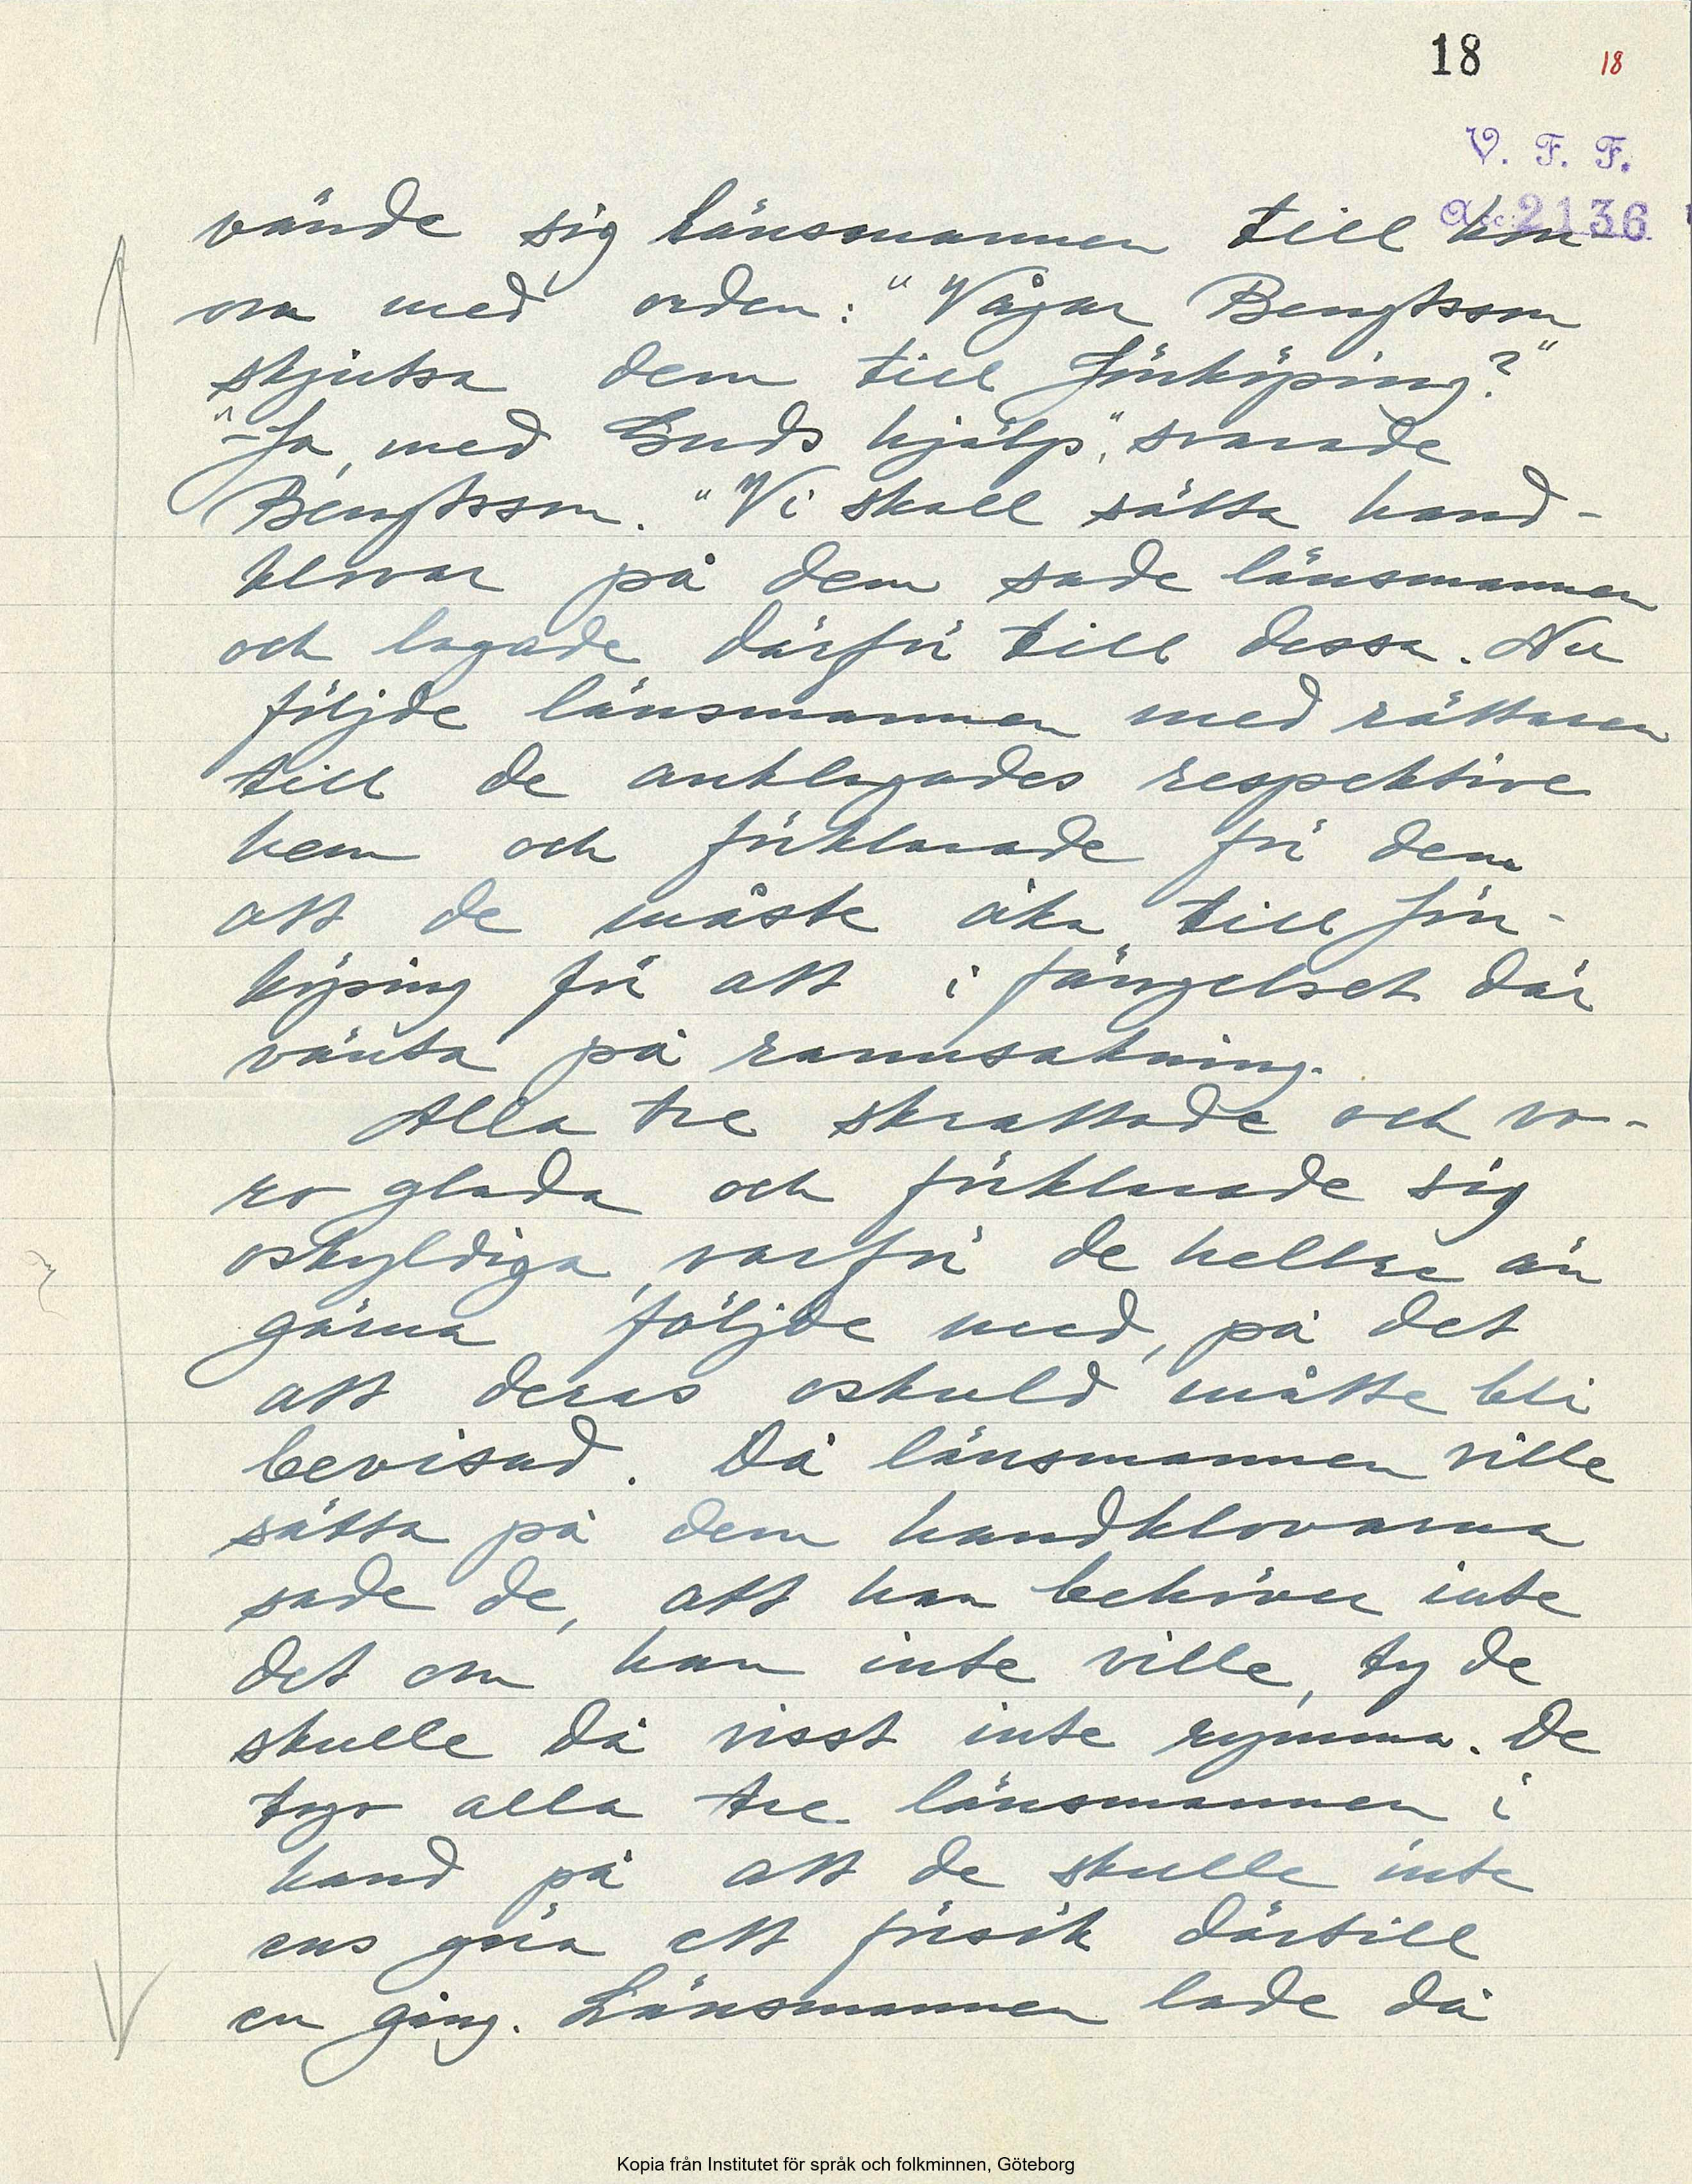 18 18
V. F. F.
Acc: 2136
vände sig länsmannen till hon
om med orden: "Vågar Bengtsson
skjutsa dem till Jönköping?"
"-Ja, med Guds hjälp", svarade
Bengtsson. "Vi skall sätta hand-
klovar på dem sade länsmannen
och lagade därför till dessa. Nu
följde länsmannen med rättaren
till de anklagades respektive
hem och förklarade för dem
att de måste åka till Jön-
köping för att i fängelset där
vänta på rannsakning.
Alla tre skrattade och vo-
ro glada och förklarade sig
oskyldiga, varför de hellre än
gärna följde med, på det
att deras oskuld måtte bli
bevisad. Då länsmannen ville
sätta på dem handklovarna
sade de, att han behöver inte
det om han inte ville, ty de
skulle då visst inte rymma. De
togo alla tre länsmannen i
hand på att de skulle inte
ens göra ett försök därtill
en gång. Länsmannen lade då
Kopia från Institutet för språk och folkminnen, Göteborg